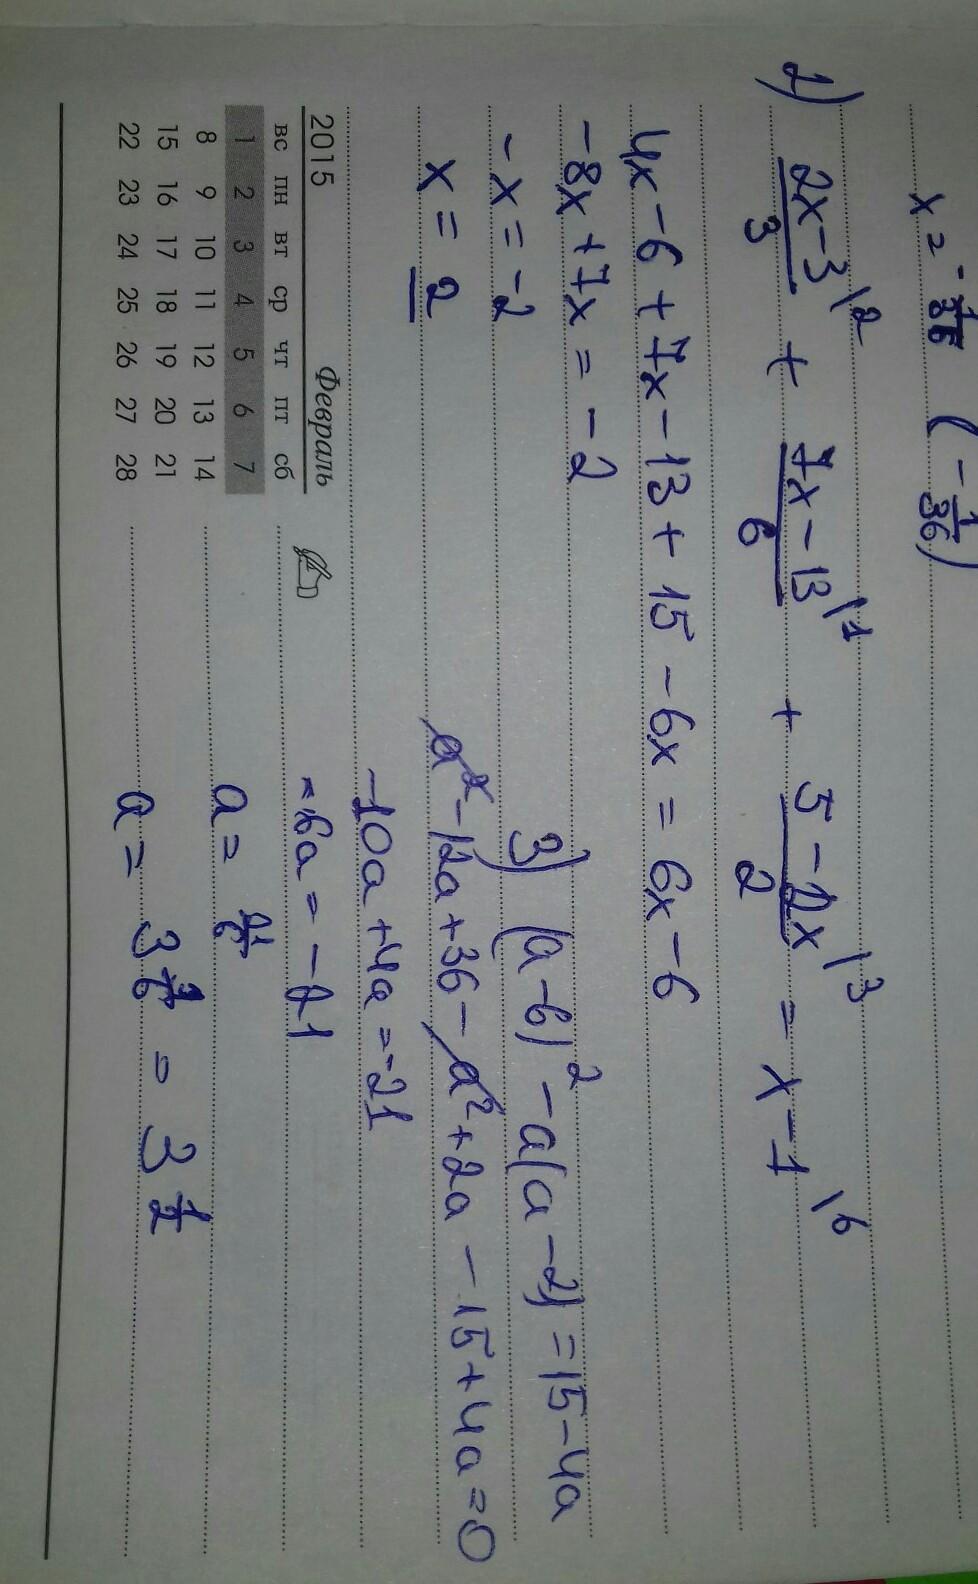 x = -1/36 (-1/36)
2) (2x-3)/3 \2 + (7x-13)/6 \1 + (5-2x)/2 \3 = x-1 \6
4x-6+7x-13+15-6x=6x-6
-8x+7x=-2
-x=-2
x=2
3) (a-6)² - a(a-2) = 15-4a
a²-12a+36-a²+2a-15+4a=0
-10a+4a=-21
-6a=-21
a=21/6
a= 3 3/6 = 3 1/2
2015 Февраль
вс пн вт ср чт пт сб
1 2 3 4 5 6 7
8 9 10 11 12 13 14
15 16 17 18 19 20 21
22 23 24 25 26 27 28